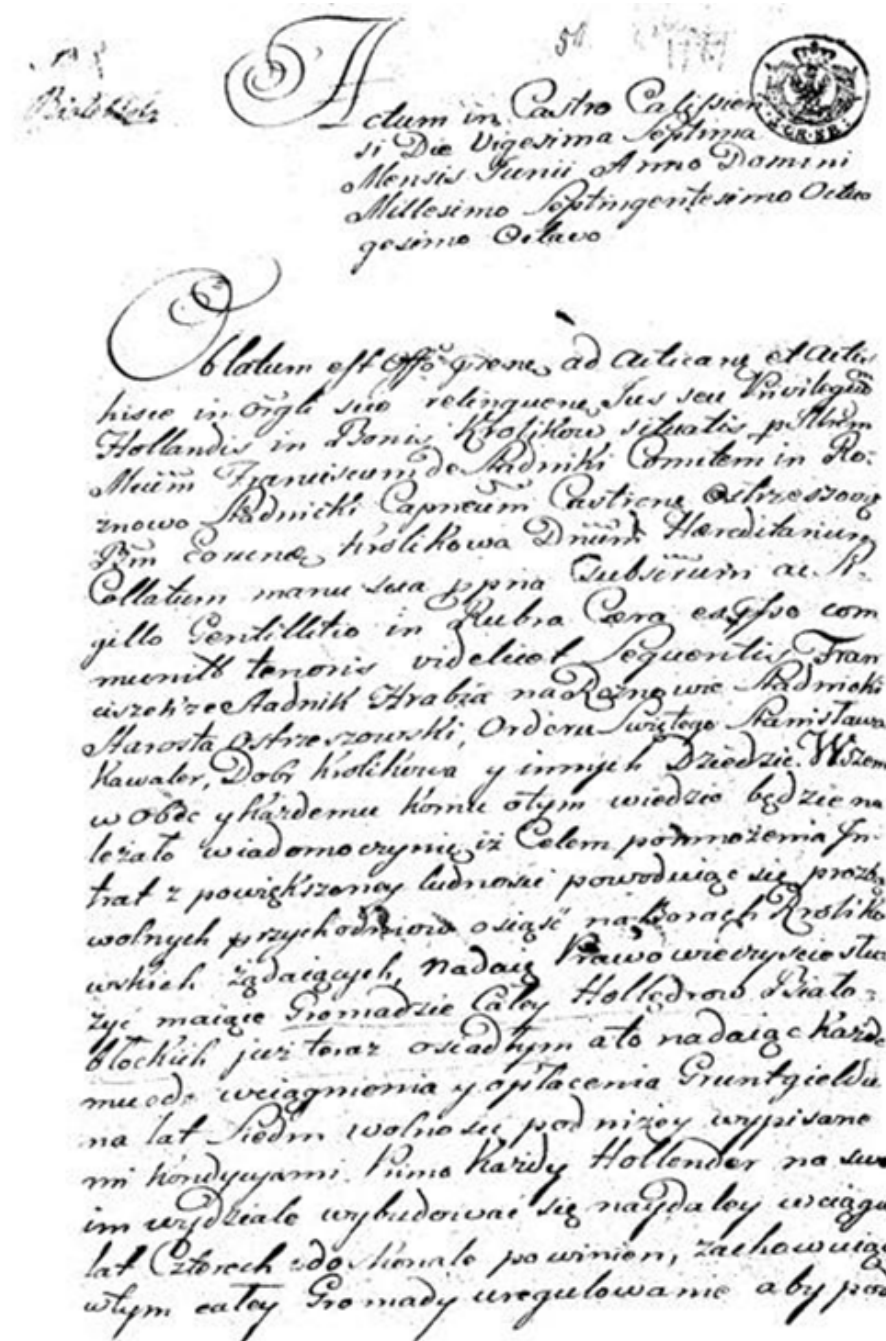 51.
Actum in Castro Calissien
si Die Vigesima Septima
Mensis Junii Anno Domini
Millesimo Septingentesimo Octua
gesimo Octavo
Oblatum est Offo ad Acticand et Actis
hisce in Orgli suo relinquend Jus seu Privilegium
Hollandis in Bonis Krolikow situatis p
Franciscum de Stadniki Comitem in Ro:
znowo Stadnicki Capneum Castrens Ostrzeszov
Krolikowa Dnum Hæreditarium
Collatum manu sua ppria Subscrum ac Si
gillo Gentillitio in Rubra Cera expsso com
munitt tenoris videlicet Sequentis Fran
ciszek ze Stadnik Hrabia na Roznowie Stadnicki
Starosta Ostrzeszowski, Orderu Swiętego Stanisława
Kawaler, Dobr Krolikowa y innych Dziedzic. Wszem
w obec y Każdemu komu otym wiedzic będzie na
leżało wiadomo czynię, iż Celem pomnożenia In
trat z powiększoney ludnosci powoduiąc się prozbą
wolnych przychodniow osiąść na Borach Kroliko
wskich żądaiących, nadaię Prawo wieczyscie słu
żyć maiące Gromadzie Całey Hollędrow Biało:
błockich już teraz osiadłym a to nadaiąc Każde
mu ode wciągnienia y opłacenia Gruntgieldu
na lat Siedm wolnosci pod niżey wypisane
mi kondycyami. Primo Każdy Hollender na swo
im wydziale wybudować się naydaley w ciągu
lat Czterech zdoskonale powinien, zachowuiąc
w tym całey Gromady uregulowanie aby poz